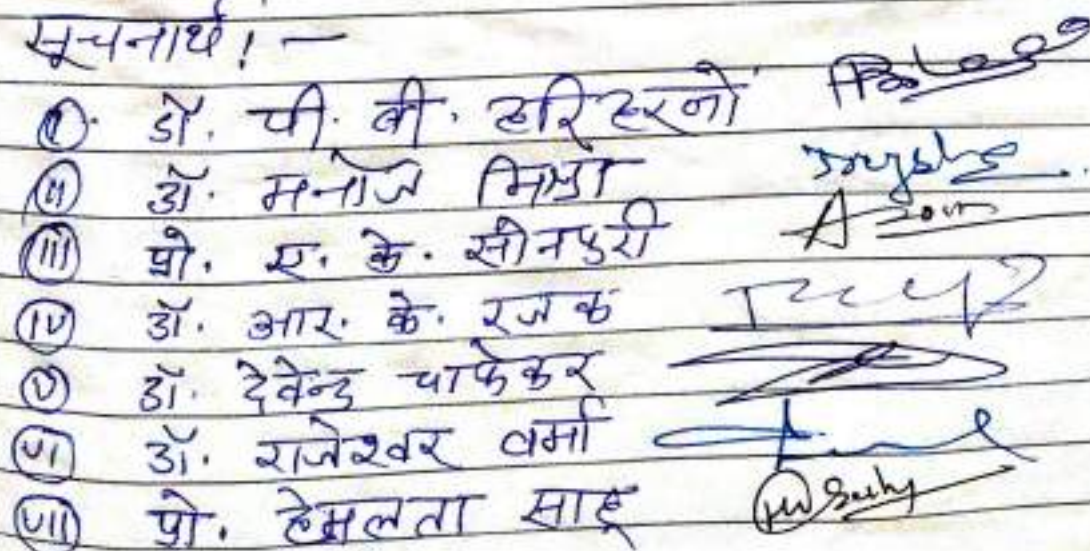 सूचनार्थ! —
(I). डॉ. पी. बी. हरिहरनो
(II) डॉ. मनोज मिश्रा
(III) प्रो. ए. के. सोनपुरी
(IV) डॉ. आर. के. रजक
(V) डॉ. देवेन्द्र चाफेकर
(VI) डॉ. राजेश्वर वर्मा
(VII) प्रो. हेमलता साहू